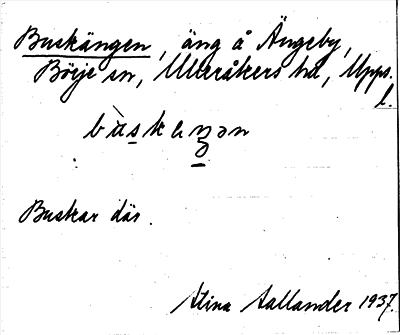 Buskängen, äng å Ängeby,
Börje sn, Ulleråkers hd, Upps.
l.
bùskeŋən
Buskar där.
Stina Sallander 1937.